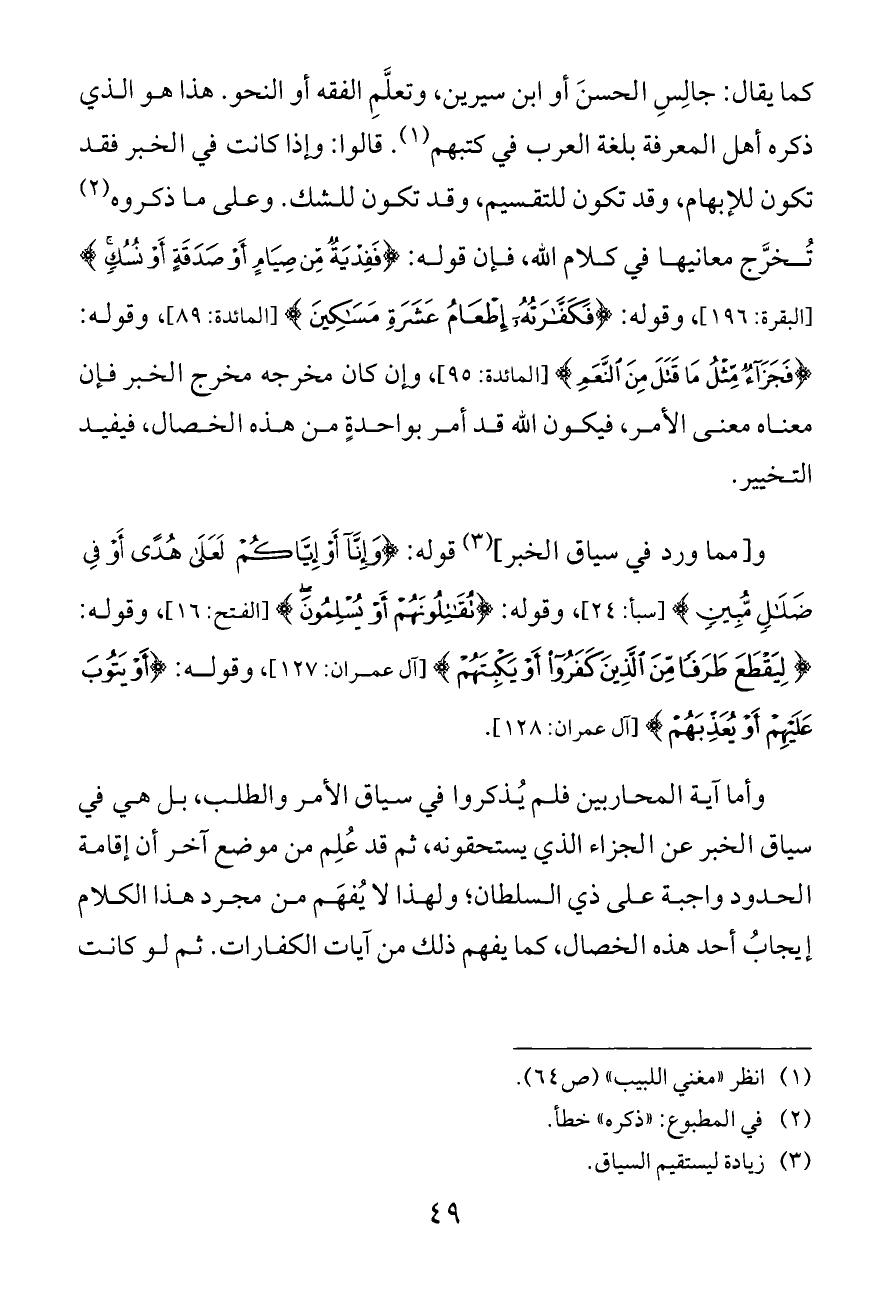 كما يقال: جالِسِ الحسنَ أو ابن سيرين، وتعلَّمِ الفقه أو النحو. هذا هو الذي
ذكره أهل المعرفة بلغة العرب في كتبهم(١). قالوا: وإذا كانت في الخبر فقد
تكون للإبهام، وقد تكون للتقسيم، وقد تكون للشك. وعلى ما ذكروه(٢)
تُخرَّج معانيها في كلام الله، فإن قوله: ﴿فَفِدْيَةٌ مِّن صِيَامٍ أَوْ صَدَقَةٍ أَوْ نُسُكٍۚ﴾
[البقرة: ١٩٦]، وقوله: ﴿فَكَفَّٰرَتُهُۥٓ إِطْعَامُ عَشَرَةِ مَسَٰكِينَ﴾ [المائدة: ٨٩]، وقوله:
﴿فَجَزَآءٌ مِّثْلُ مَا قَتَلَ مِنَ ٱلنَّعَمِ﴾ [المائدة: ٩٥]، وإن كان مخرجه مخرج الخبر فإن
معناه معنى الأمر، فيكون الله قد أمر بواحدةٍ من هذه الخصال، فيفيد
التخيير.
و[مما ورد في سياق الخبر](٣) قوله: ﴿وَإِنَّآ أَوْ إِيَّاكُمْ لَعَلَىٰ هُدًى أَوْ فِى
ضَلَٰلٍ مُّبِينٍ﴾ [سبأ: ٢٤]، وقوله: ﴿تُقَٰتِلُونَهُمْ أَوْ يُسْلِمُونَۖ﴾ [الفتح: ١٦]، وقوله:
﴿لِيَقْطَعَ طَرَفًا مِّنَ ٱلَّذِينَ كَفَرُوٓا۟ أَوْ يَكْبِتَهُمْ﴾ [آل عمران: ١٢٧]، وقوله: ﴿أَوْ يَتُوبَ
عَلَيْهِمْ أَوْ يُعَذِّبَهُمْ﴾ [آل عمران: ١٢٨].
وأما آية المحاربين فلم يُذكروا في سياق الأمر والطلب، بل هي في
سياق الخبر عن الجزاء الذي يستحقونه، ثم قد عُلِم من موضع آخر أن إقامة
الحدود واجبة على ذي السلطان؛ ولهذا لا يُفهَم من مجرد هذا الكلام
إيجابُ أحد هذه الخصال، كما يفهم ذلك من آيات الكفارات. ثم لو كانت
(١) انظر «مغني اللبيب» (ص٦٤).
(٢) في المطبوع: «ذكره» خطأ.
(٣) زيادة ليستقيم السياق.
٤٩